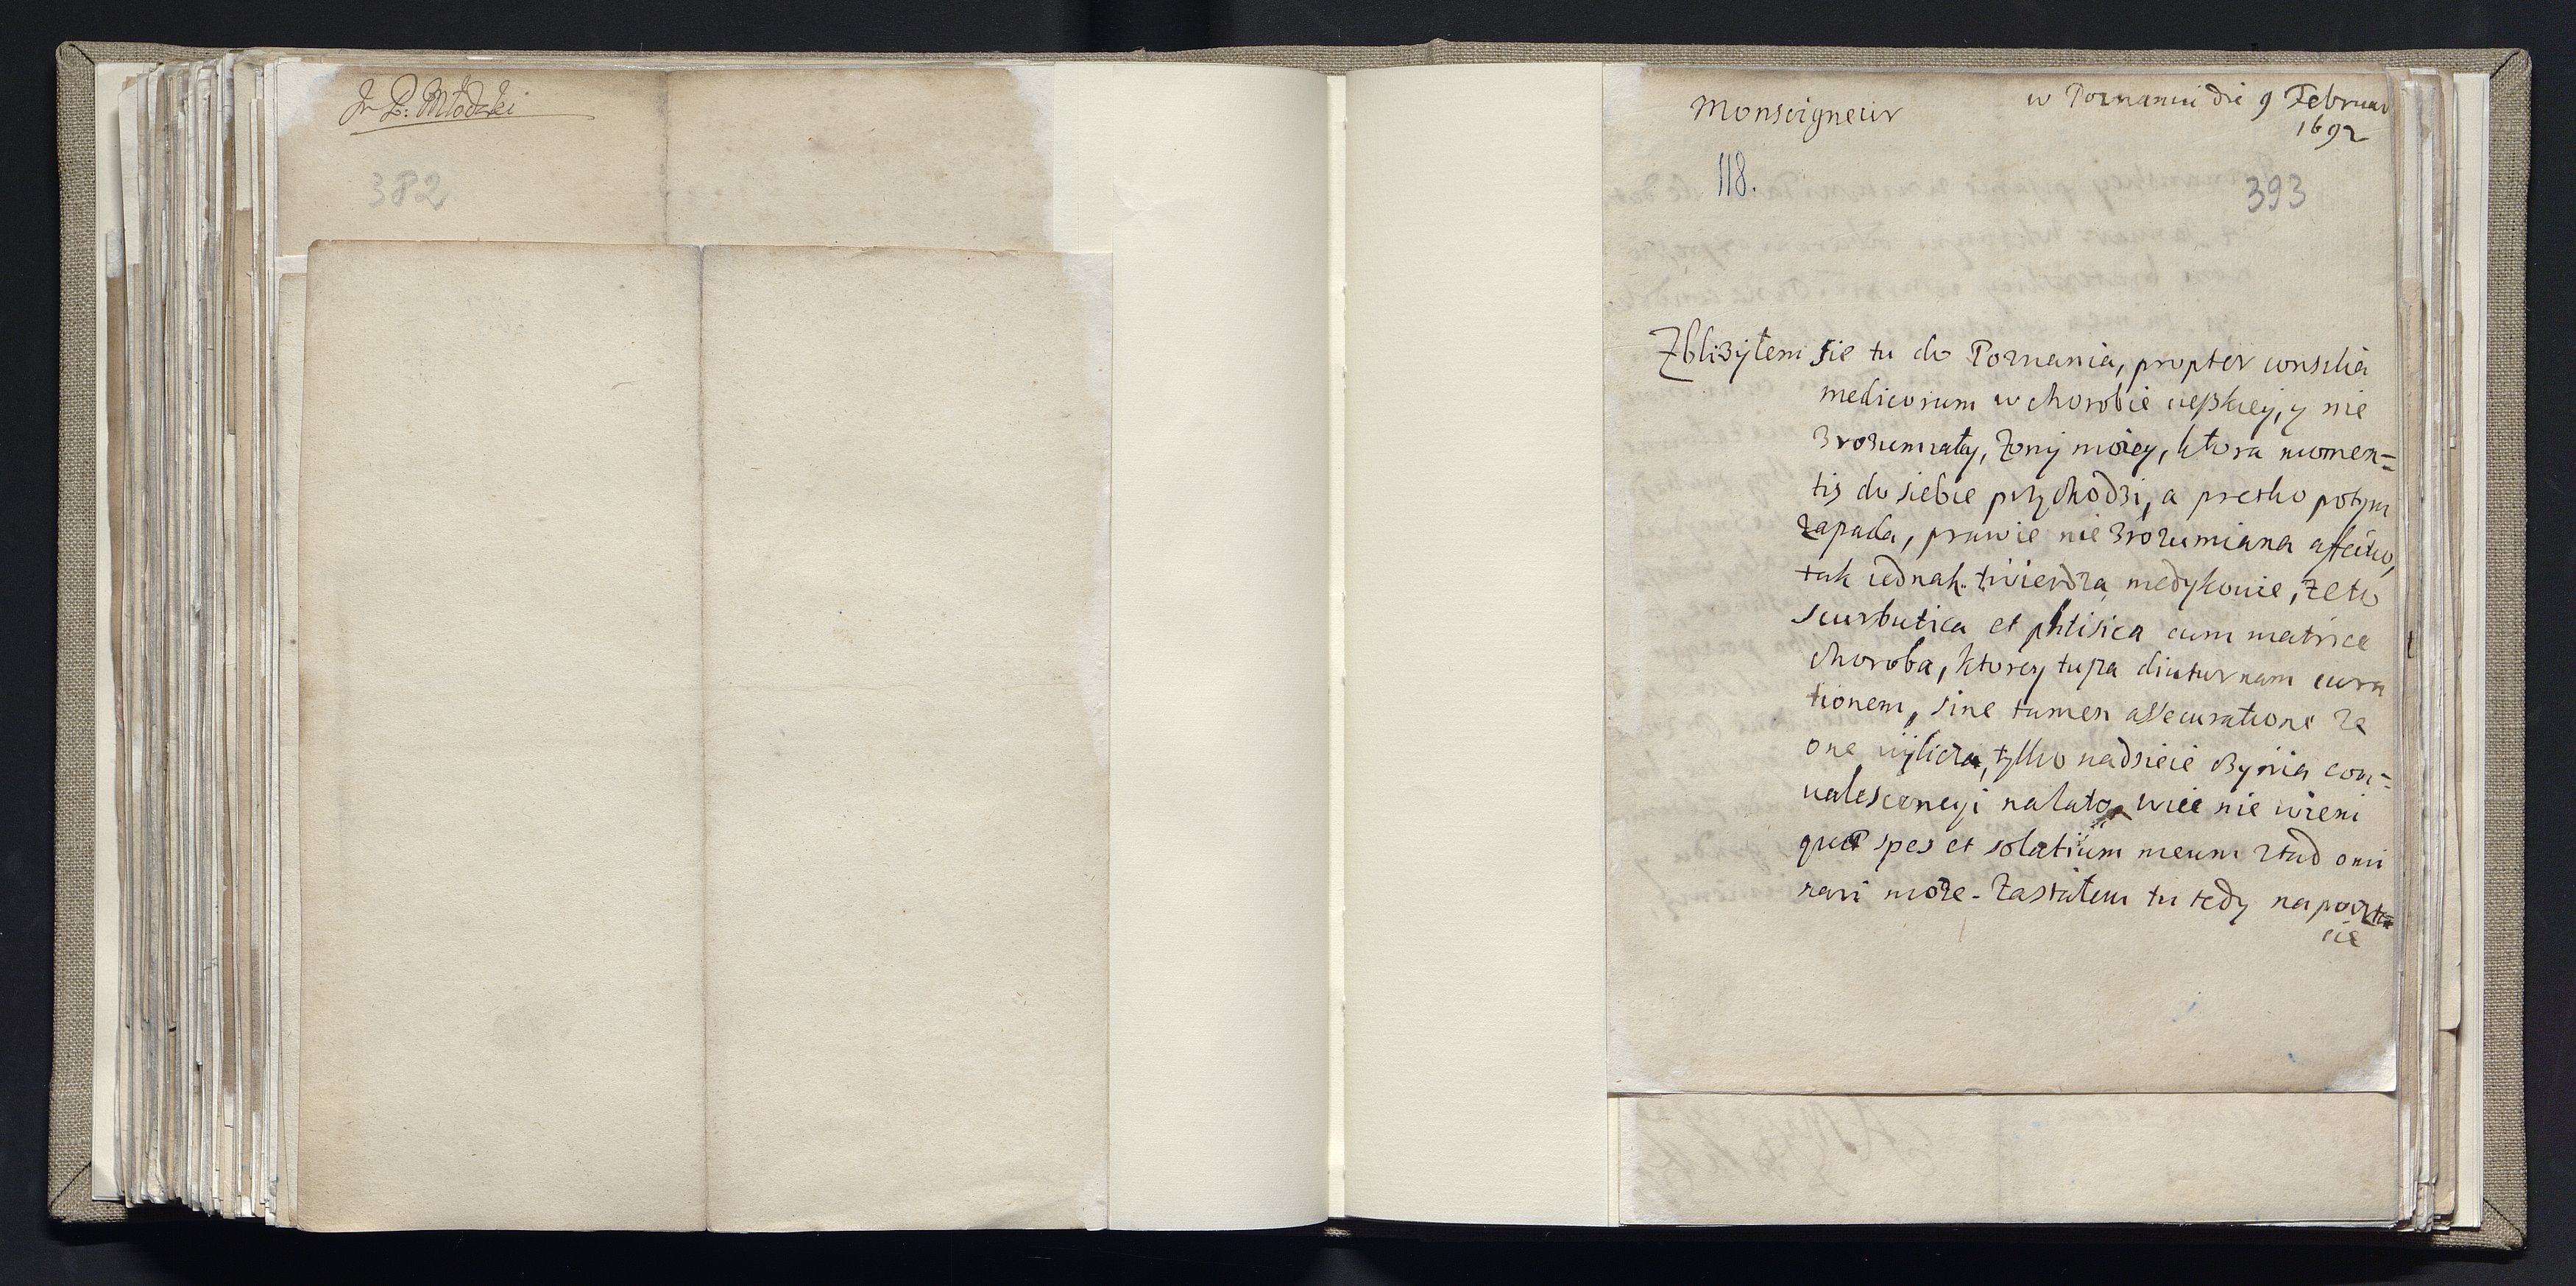 Jr P: Młodzki
382
Monseigneur
w Poznaniu die 9 Februar
1692
118.
393
Zbliżyłem sie tu do Poznania, propter consilia
medicorum w chorobie cięszkiey, y nie
zrozumiałey, żony moiey, ktora momen=
tis do siebie przychodzi, a pretko potym
zapada, prawie nie zrozumiana affectio,
tak iednak twierdza medykowie, że to
scurbutica et phtisica cum matrice
choroba, ktorey tusza diuturnam cura
tionem, sine tamen assecuratione że
one wylicza, tylko nadzieie czynia con=
ualescencyi na lato wiec nie wiem
quae spes et solatium meum ztad omi
nari może. Zastałem tu tedy na poczt
cie